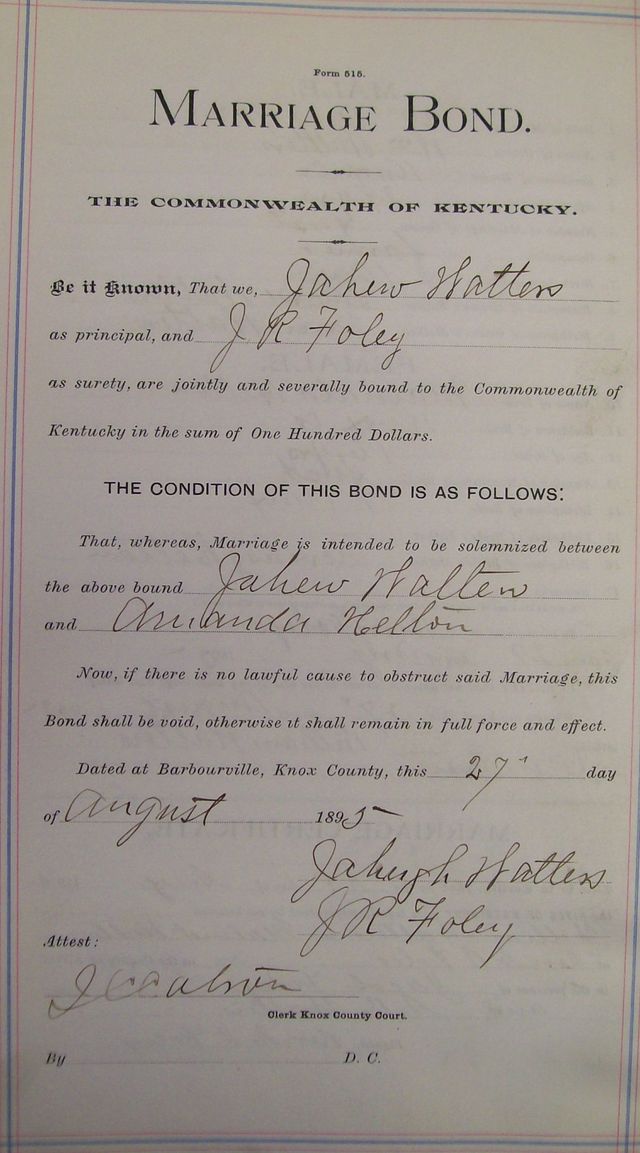 Form 515.
MARRIAGE BOND.
THE COMMONWEALTH OF KENTUCKY.
Be it Known, That we, Jahew Watters
as principal, and J R Foley
as surety, are jointly and severally bound to the Commonwealth of
Kentucky in the sum of One Hundred Dollars.
THE CONDITION OF THIS BOND IS AS FOLLOWS:
That, whereas, Marriage is intended to be solemnized between
the above bound Jahew
and Amanda Helton
Now, if there is no lawful cause to obstruct said Marriage, this
Bond shall be void, otherwise it shall remain in full force and effect.
Dated at Barbourville, Knox County, this 27 day
of August 1895
Watters
J R Foley
Attest:
Clerk Knox County Court.
By D. C.